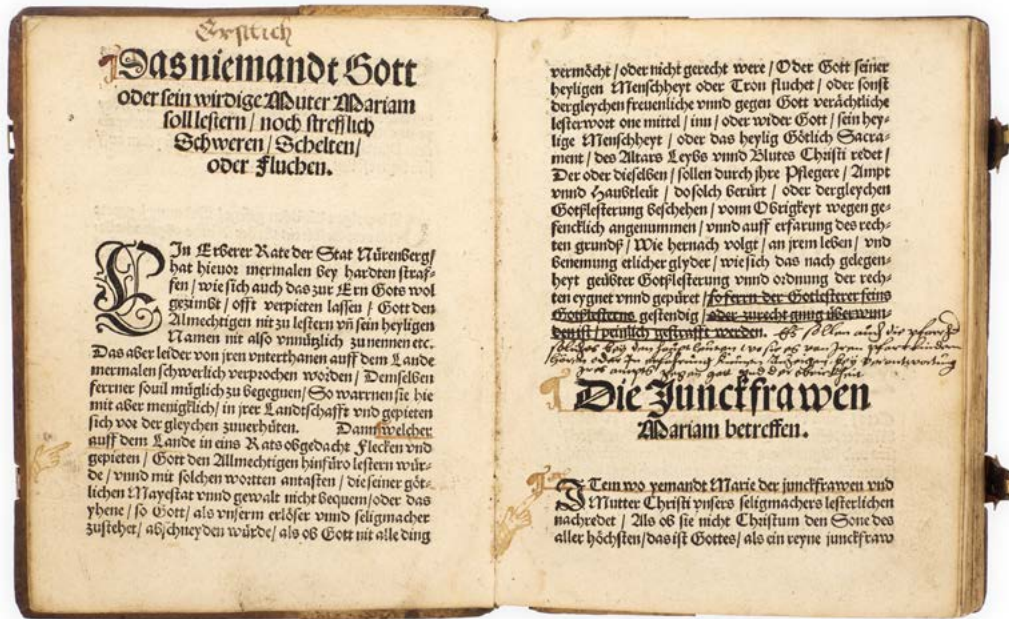 Erstlich
Das niemandt Gott
oder sein wirdige Muter Mariam
soll lestern / noch strefflich
Schweren / Schelten /
oder Fluchen.
EIn Erberer Rate der Stat Nürenberg /
hat hieuor mermalen bey hardten straf-
fen / wie sich auch das zur Ern Gots wol
gezimbt / offt verpieten lassen / Gott den
Almechtigen nit zu lestern vñ sein heyligen
Namen nit also vnnützlich zu nennen etc.
Das aber leider von jren vnterthanen auff dem Lande
mermalen schwerlich verprochen worden / Demselben
ferrner souil müglich zu begegnen / So warrnen sie hie
mit aber menigklich / in jrer Landtschafft vnd gepieten
sich vor der gleychen zuuerhüten. Dann welcher
auff dem Lande in eins Rats obgedacht Flecken vnd
gepieten / Gott den Allmechtigen hinfüro lestern wür-
de / vnnd mit solchen wortten antasten / die seiner göt-
lichen Mayestat vnnd gewalt nicht bequem / oder das
yhene / so Gott / als vnserm erlöser vnnd seligmacher
zustehet / abschneyden würde / als ob Gott nit alle ding
vermöcht / oder nicht gerecht were / Oder Gott seiner
heyligen Menschheyt oder Tron fluchet / oder sonst
dergleychen freuenliche vnnd gegen Gott verächtliche
lesterwort one mittel / inn / oder wider Gott / sein hey-
lige Menschheyt / oder das heylig Götlich Sacra-
ment / des Altars Leybs vnnd Blutes Christi redet /
Der oder dieselben / sollen durch jhre Pflegere / Ampt
vnnd Haubtleüt / do solch berürt / oder dergleychen
Gotßlesterung beschehen / vonn Obrigkeyt wegen ge-
fencklich angenummen / vnnd auff erfarung des rech-
ten grundß / Wie hernach volgt / an jrem leben / vnd
benemung etlicher glyder / wie sich das nach gelegen-
heyt geübter Gotßlesterung vnnd ordnung der rech-
ten eygnet vnnd gepüret / so ferrn der Gotlesterer seins
Gotßlesterns gestendig / oder zu recht gnug überwun-
den ist / peinlich gestrafft werden. Es sollen auch die pfarr
bey den haubtleuten wo sie es von Iren pfarrkindern
oder In erfahrung
ampts
Die Junckfrawen
Mariam betreffen.
ITem wo yemandt Marie der junckfrawen vnd
Mutter Christi vnsers seligmachers lesterlichen
nachredet / Als ob sie nicht Christum den Sone des
aller höchsten / das ist Gottes / als ein reyne junckfraw